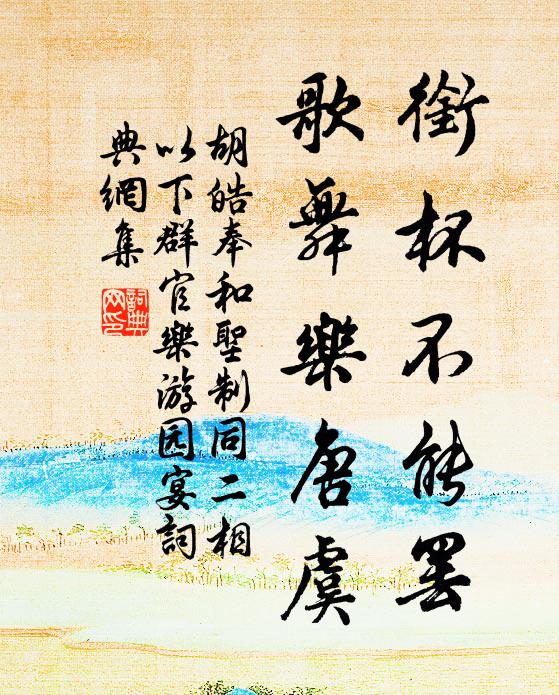 銜杯不能罢
歌舞樂唐虞
胡皓奉和聖制同二相
以下群官樂游园宴詞
典網集
詞典
网印